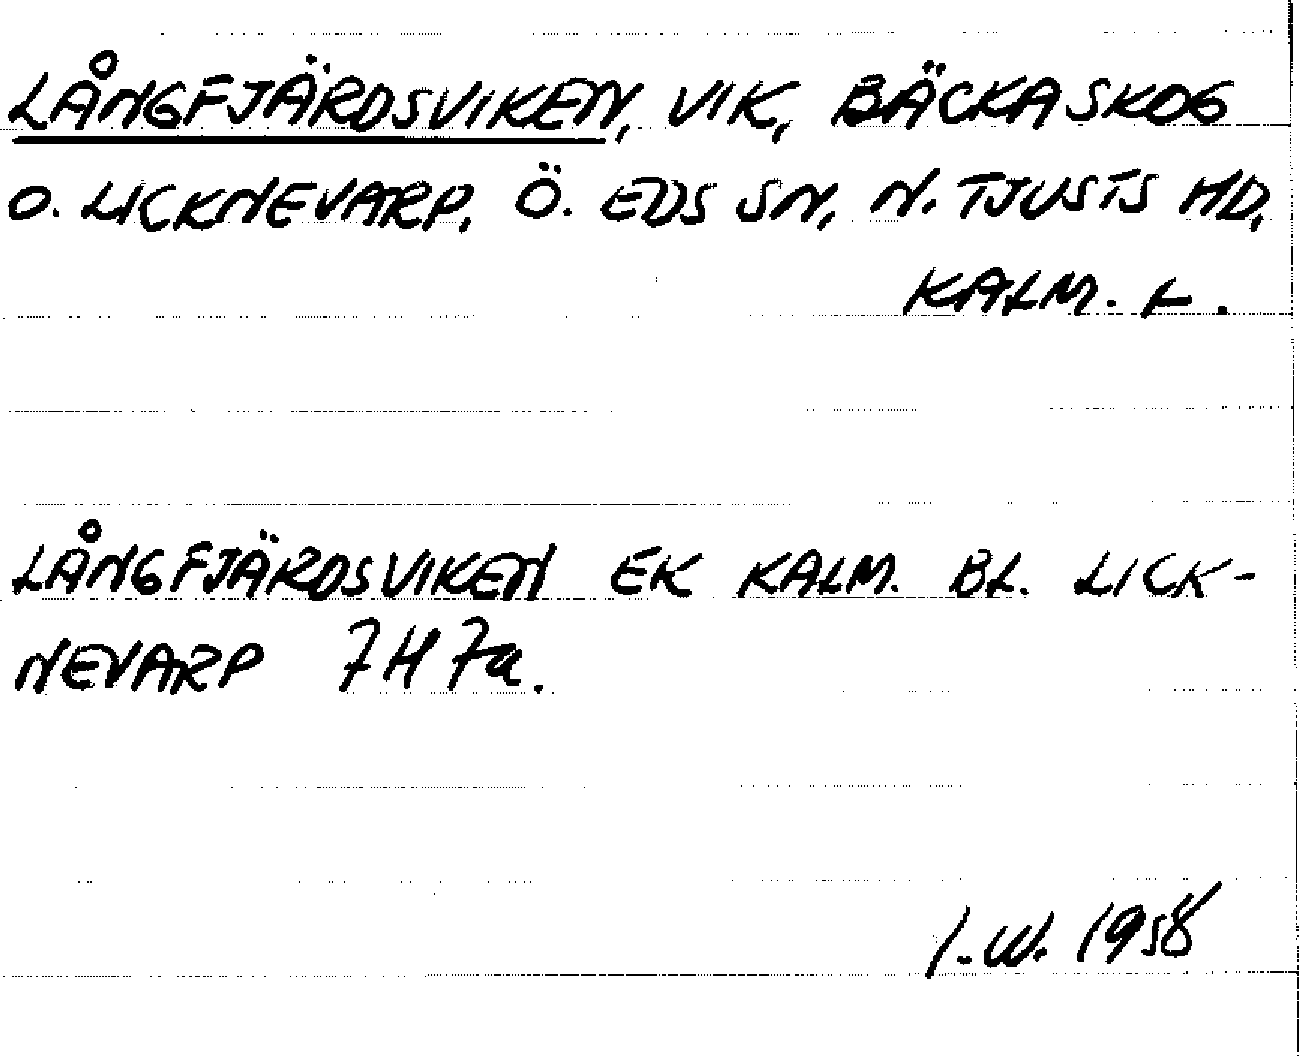 LÅNGFJÄRDSVIKEN, VIK, BÄCKASKOG
O. LICKNEVARP, Ö. EDS SN, N. TJUSTS HD,
KALM. L.
LÅNGFJÄRDSVIKEN EK KALM. BL. LICK-
NEVARP 7H7a.
I.W. 1958